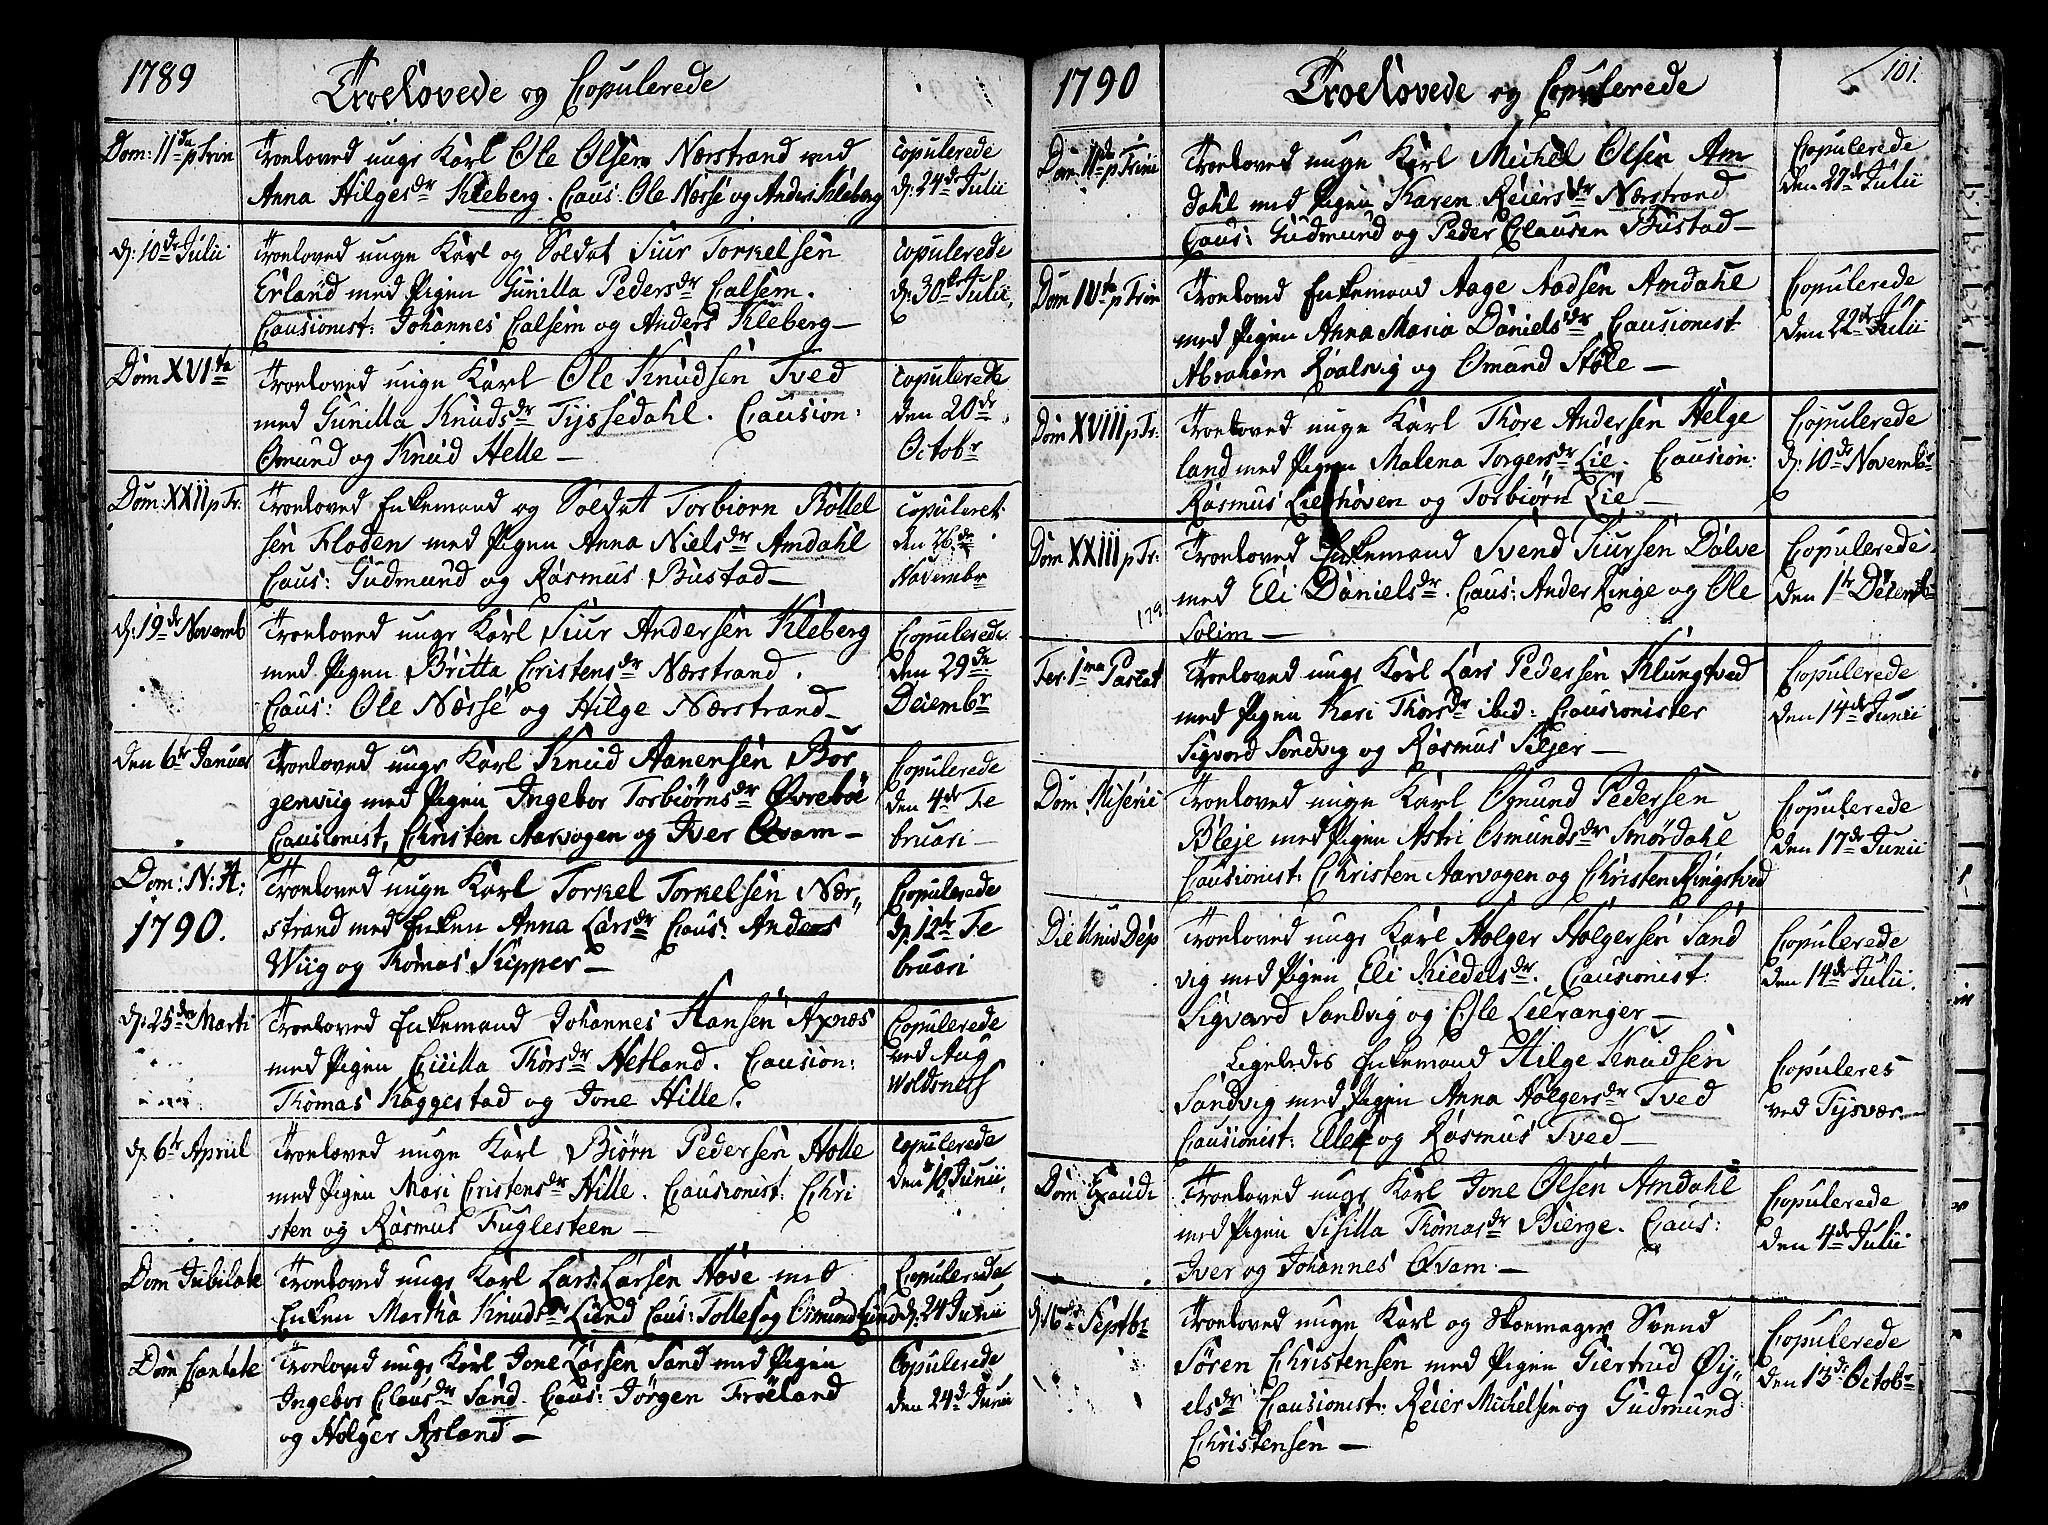 1789
Troelovede og Copulerede
Dom: 11da p Trin
Troeloved unge Karl Ole Olsen Nærstrand med
Anna Hilgesdr Kleberg. Caus: Ole Næsse og Anders Kleberg
copulerede
d: 24de Julii
d: 10de Julii
Troeloved unge Karl og Soldat Siur Torkelsen
Erland med Pigen Gunilla Pedersdr Calsem.
Causionist: Johannes Calsem og Anders Kleberg —
copulerede
d: 30te Julii,
Dom XVIta
Troeloved unge Karl Ole Knudsen Tved
med Gunilla Knudsdr Tyssedahl. Causion:
Omund og Knud Helle —
copulerede
den 20de
Octobr
Dom: XXII p Tr.
Troeloved Enkemand og Soldat Torbiorn Bottel
sen Floden med Pigen Anna Nielsdr Amdahl
Caus: Gudmund og Rasmus Bustad —
copuleret
den 26de
Novembr
d: 19de Novemb
Troeloved unge Karl Siur Andersen Kleberg
med Pigen Britta Cristensdr Nærstrand.
Caus: Ole Næsse og Hilge Nærstrand —
Copulerede
den 29de
Decembr
den 6te Januar
Troeloved unge Karl Knud Aanensen Bor
genviig med Pigen Ingebor Torbiørnsdr Øvreböe
Causionist, Christen Aarvogen og Iver Qvam —
Copulerede
den 4de Fe
bruari —
Dom: N: A:
1790.
Troeloved unge Karl Torkel Torkelsen Nær-
strand med Enken Anna Larsdr Caus: Anders
Wiig og Thomas Kipper —
Copulerede
d: 12te Fe
bruari
d: 25de Marti
Troeloved Enkemand Johannes Hansen Axnæs
med Pigen Cicilla Thorsdr Hetland. Causion:
Thomas Kaggestad og Jone Hille.
Copulerede
ved Aug
Woldsness
d. 6te Apriil
Troeloved unge Karl Biørn Pedersen Holle
med Pigen Mari Cristensdr Hille. Causionist: Chri
sten og Rasmus Fuglesteen —
copulerede
den 10 Junii,
Dom Jubilate
Troeloved unge Karl Lars Larsen Hove med
Enken Martha Knudsdr Liend Caus: Tollef og Osmund Lund
Copulerede
d: 24 Junii
Dom Cantate
Troeloved unge Karl Jone Larsen Sand med Pigen
Ingebor Clausdr Sand. Caus: Jörgen Fröeland
og Holger Asland —
Copulerede
den 24d Junii
1790
Troelovede og Copulerede
101.
Dom: 11da p Trini
Troeloved unge Karl Michel Olsen Am
dahl med Pigen Karen Reiersdr Nærstrand
Caus: Gudmund og Peder Clausen Bustad —
Copulerede
den 27de Julii
Dom IVta p Trin
Troeloved Enkemand Aage Aadsen Amdahl
med Pigen Anna Maria Danielsdr Causionist
Abraham Roalsvig og Omund Stöle —
Copulerede
den 22de Julii
Dom XVIII p Tr.
Troeloved unge Karl Thore Andersen Helge
land med Pigen Malena Torgersdr Lie. Causion:
Rasmus Liehöven og Torbiørn Lie —
Copulerede
d: 10de Novembr
Dom XXIII p Tr.
179
Troeloved Enkemand Svend Siursen Dalve
med Eli Danielsdr. Caus: Ander Ringe og Ole
Solim —
Copulerede
den 1te Decembr
Fer: 1ma Pascat
Troeloved unge Karl Lars Pedersen Klungtved
med Pigen Kari Thorsdr ibid: Causionister
Sigvard Sandvig og Rasmus Siljer —
Copulerede
den 14de Junii
Dom Miseric
Troeloved unge Karl Omund Pedersen
Bleje med Pigen Astri Osmundsdr Snördahl
Causionist: Christen Aarvogen og Christen Ringstved
Copulerede
den 17de Junii
Die Univ Dep
Troeloved unge Karl Holger Holgersen Sand
vig med Pigen Eli Kiedelsdr. Causionist
Sigvard Sandvig og Ole Leeranger —
Copulerede
den 14de Julii.
Ligeledes Enkemand Hilge Knudsen
Sandvig med Pigen Anna Holgersdr Tved
Causionist: Ellef og Rasmus Tved —
Copuleres
ved Tysvær —
Dom Exaudi
Troeloved unge Karl Jone Olsen Amdahl
med Pigen Sisilla Thomasdr Bierge. Caus:
Iver og Johannes Qvam. —
Copulerede
den 4de Julii
d: 16de Septbr
Troeloved unge Karl og Skoemager Svend
Sören Christensen med Pigen Giertrud Øy-
elsdr Causionist: Reier Michelsen og Gudmund
Christensen —
Copulerede
den 13de Octobr